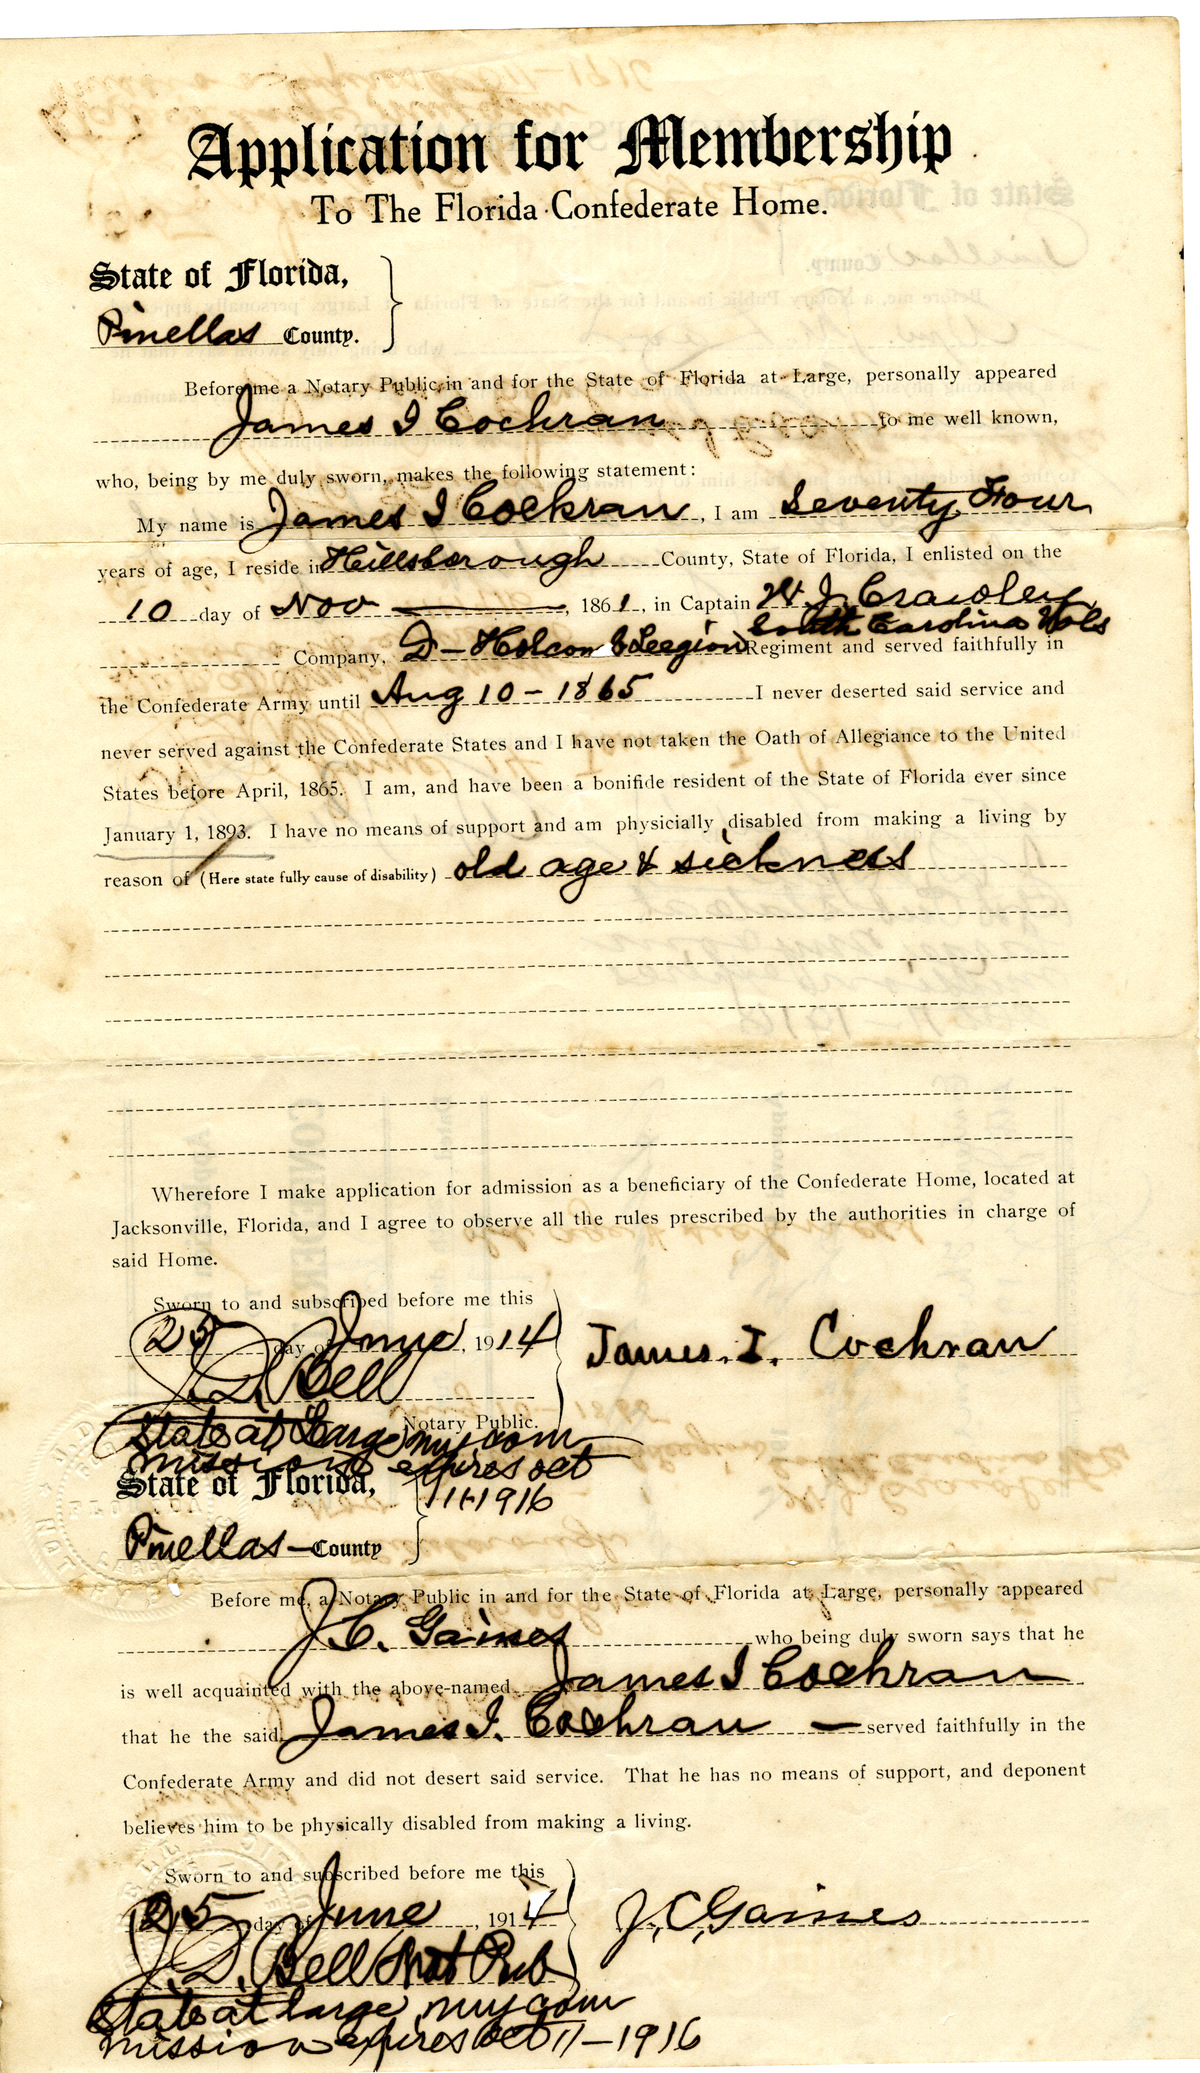 Application for Membership
To The Florida Confederate Home.
State of Florida,
Pinellas County.
Before me a Notary Public in and for the State of Florida at Large, personally appeared
James I Cochran to me well known,
who, being by me duly sworn, makes the following statement:
My name is James I Cochran, I am Seventy Four
years of age, I reside in Hillsborough County, State of Florida, I enlisted on the
10 day of Nov, 1861, in Captain W. J. Crawley
South Carolina Vols
Company, D - Holcomb Leegion Regiment and served faithfully in
the Confederate Army until Aug 10 - 1865 I never deserted said service and
never served against the Confederate States and I have not taken the Oath of Allegiance to the United
States before April, 1865. I am, and have been a bonifide resident of the State of Florida ever since
January 1, 1893. I have no means of support and am physicially disabled from making a living by
reason of (Here state fully cause of disability) old age & sickness
Wherefore I make application for admission as a beneficiary of the Confederate Home, located at
Jacksonville, Florida, and I agree to observe all the rules prescribed by the authorities in charge of
said Home.
Sworn to and subscribed before me this
25 day of June, 1914 James. I. Cochran
J. D. Bell
Notary Public.
State at Large my com
mission expires Oct
11-1916
State of Florida,
Pinellas County
Before me, a Notary Public in and for the State of Florida at Large, personally appeared
J. C. Gaines who being duly sworn says that he
is well acquainted with the above-named James I Cochran
that he the said James I. Cochran served faithfully in the
Confederate Army and did not desert said service. That he has no means of support, and deponent
believes him to be physically disabled from making a living.
Sworn to and subscribed before me this
25 day of June, 1914 J. C. Gaines
J. D. Bell Not Pub
State at large my com
mission expires Oct 11-1916